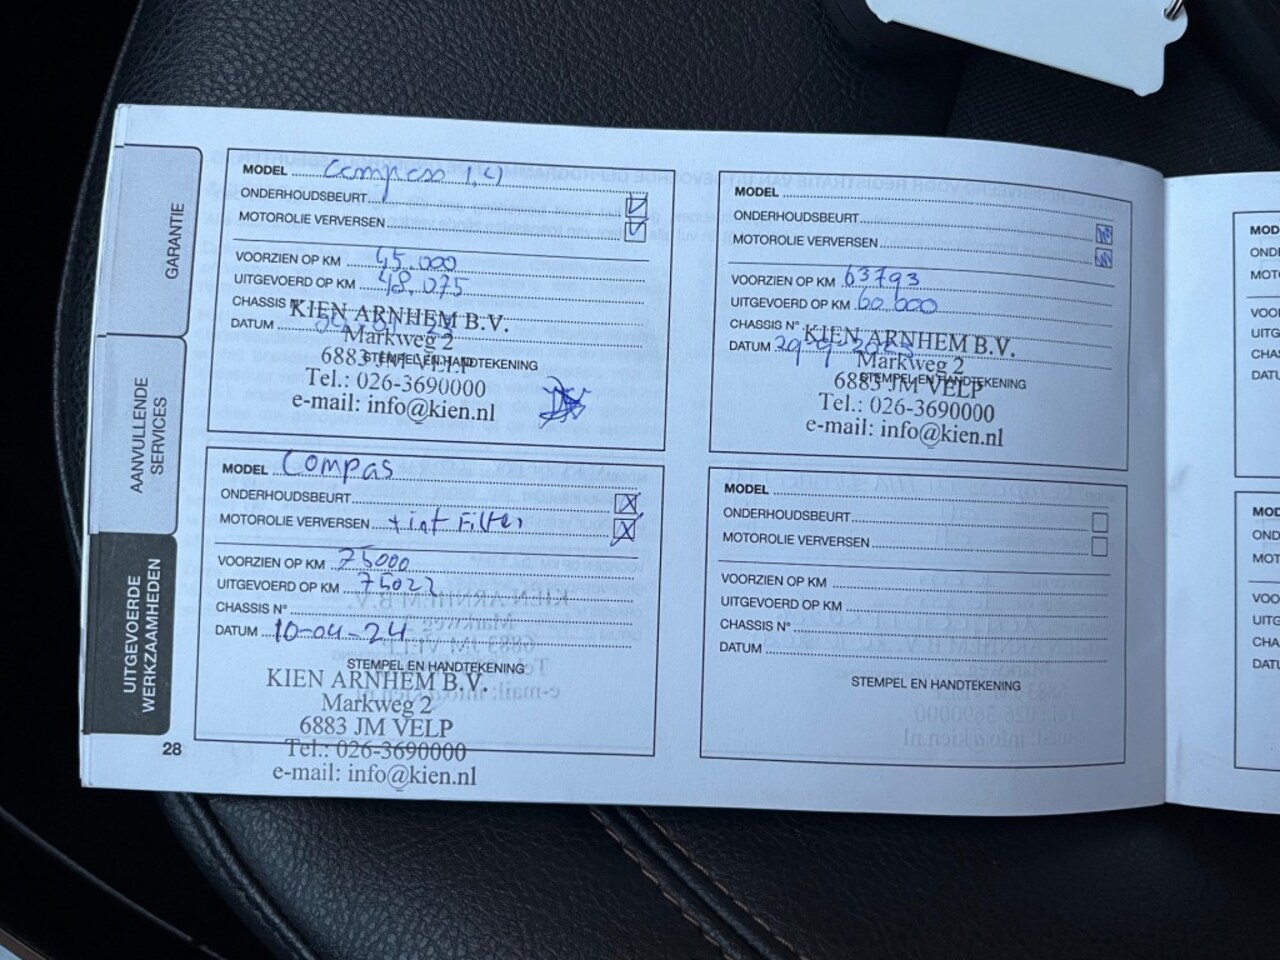 GARANTIE
AANVULLENDE
SERVICES
UITGEVOERDE
WERKZAAMHEDEN
28
MODEL Compass 1.4
ONDERHOUDSBEURT
MOTOROLIE VERVERSEN
VOORZIEN OP KM 45.000
UITGEVOERD OP KM 48.075
CHASSIS N°
DATUM
STEMPEL EN HANDTEKENING
KIEN ARNHEM B.V.
Markweg 2
6883 JM VELP
Tel.: 026-3690000
e-mail: info@kien.nl
MODEL
ONDERHOUDSBEURT
MOTOROLIE VERVERSEN
VOORZIEN OP KM 63793
UITGEVOERD OP KM 60.000
CHASSIS N°
DATUM 29-9-2023
STEMPEL EN HANDTEKENING
KIEN ARNHEM B.V.
Markweg 2
6883 JM VELP
Tel.: 026-3690000
e-mail: info@kien.nl
MODEL Compas
ONDERHOUDSBEURT
MOTOROLIE VERVERSEN + int Filter
VOORZIEN OP KM 75000
UITGEVOERD OP KM 75022
CHASSIS N°
DATUM 10-04-24
STEMPEL EN HANDTEKENING
KIEN ARNHEM B.V.
Markweg 2
6883 JM VELP
Tel.: 026-3690000
e-mail: info@kien.nl
MODEL
ONDERHOUDSBEURT
MOTOROLIE VERVERSEN
VOORZIEN OP KM
UITGEVOERD OP KM
CHASSIS N°
DATUM
STEMPEL EN HANDTEKENING